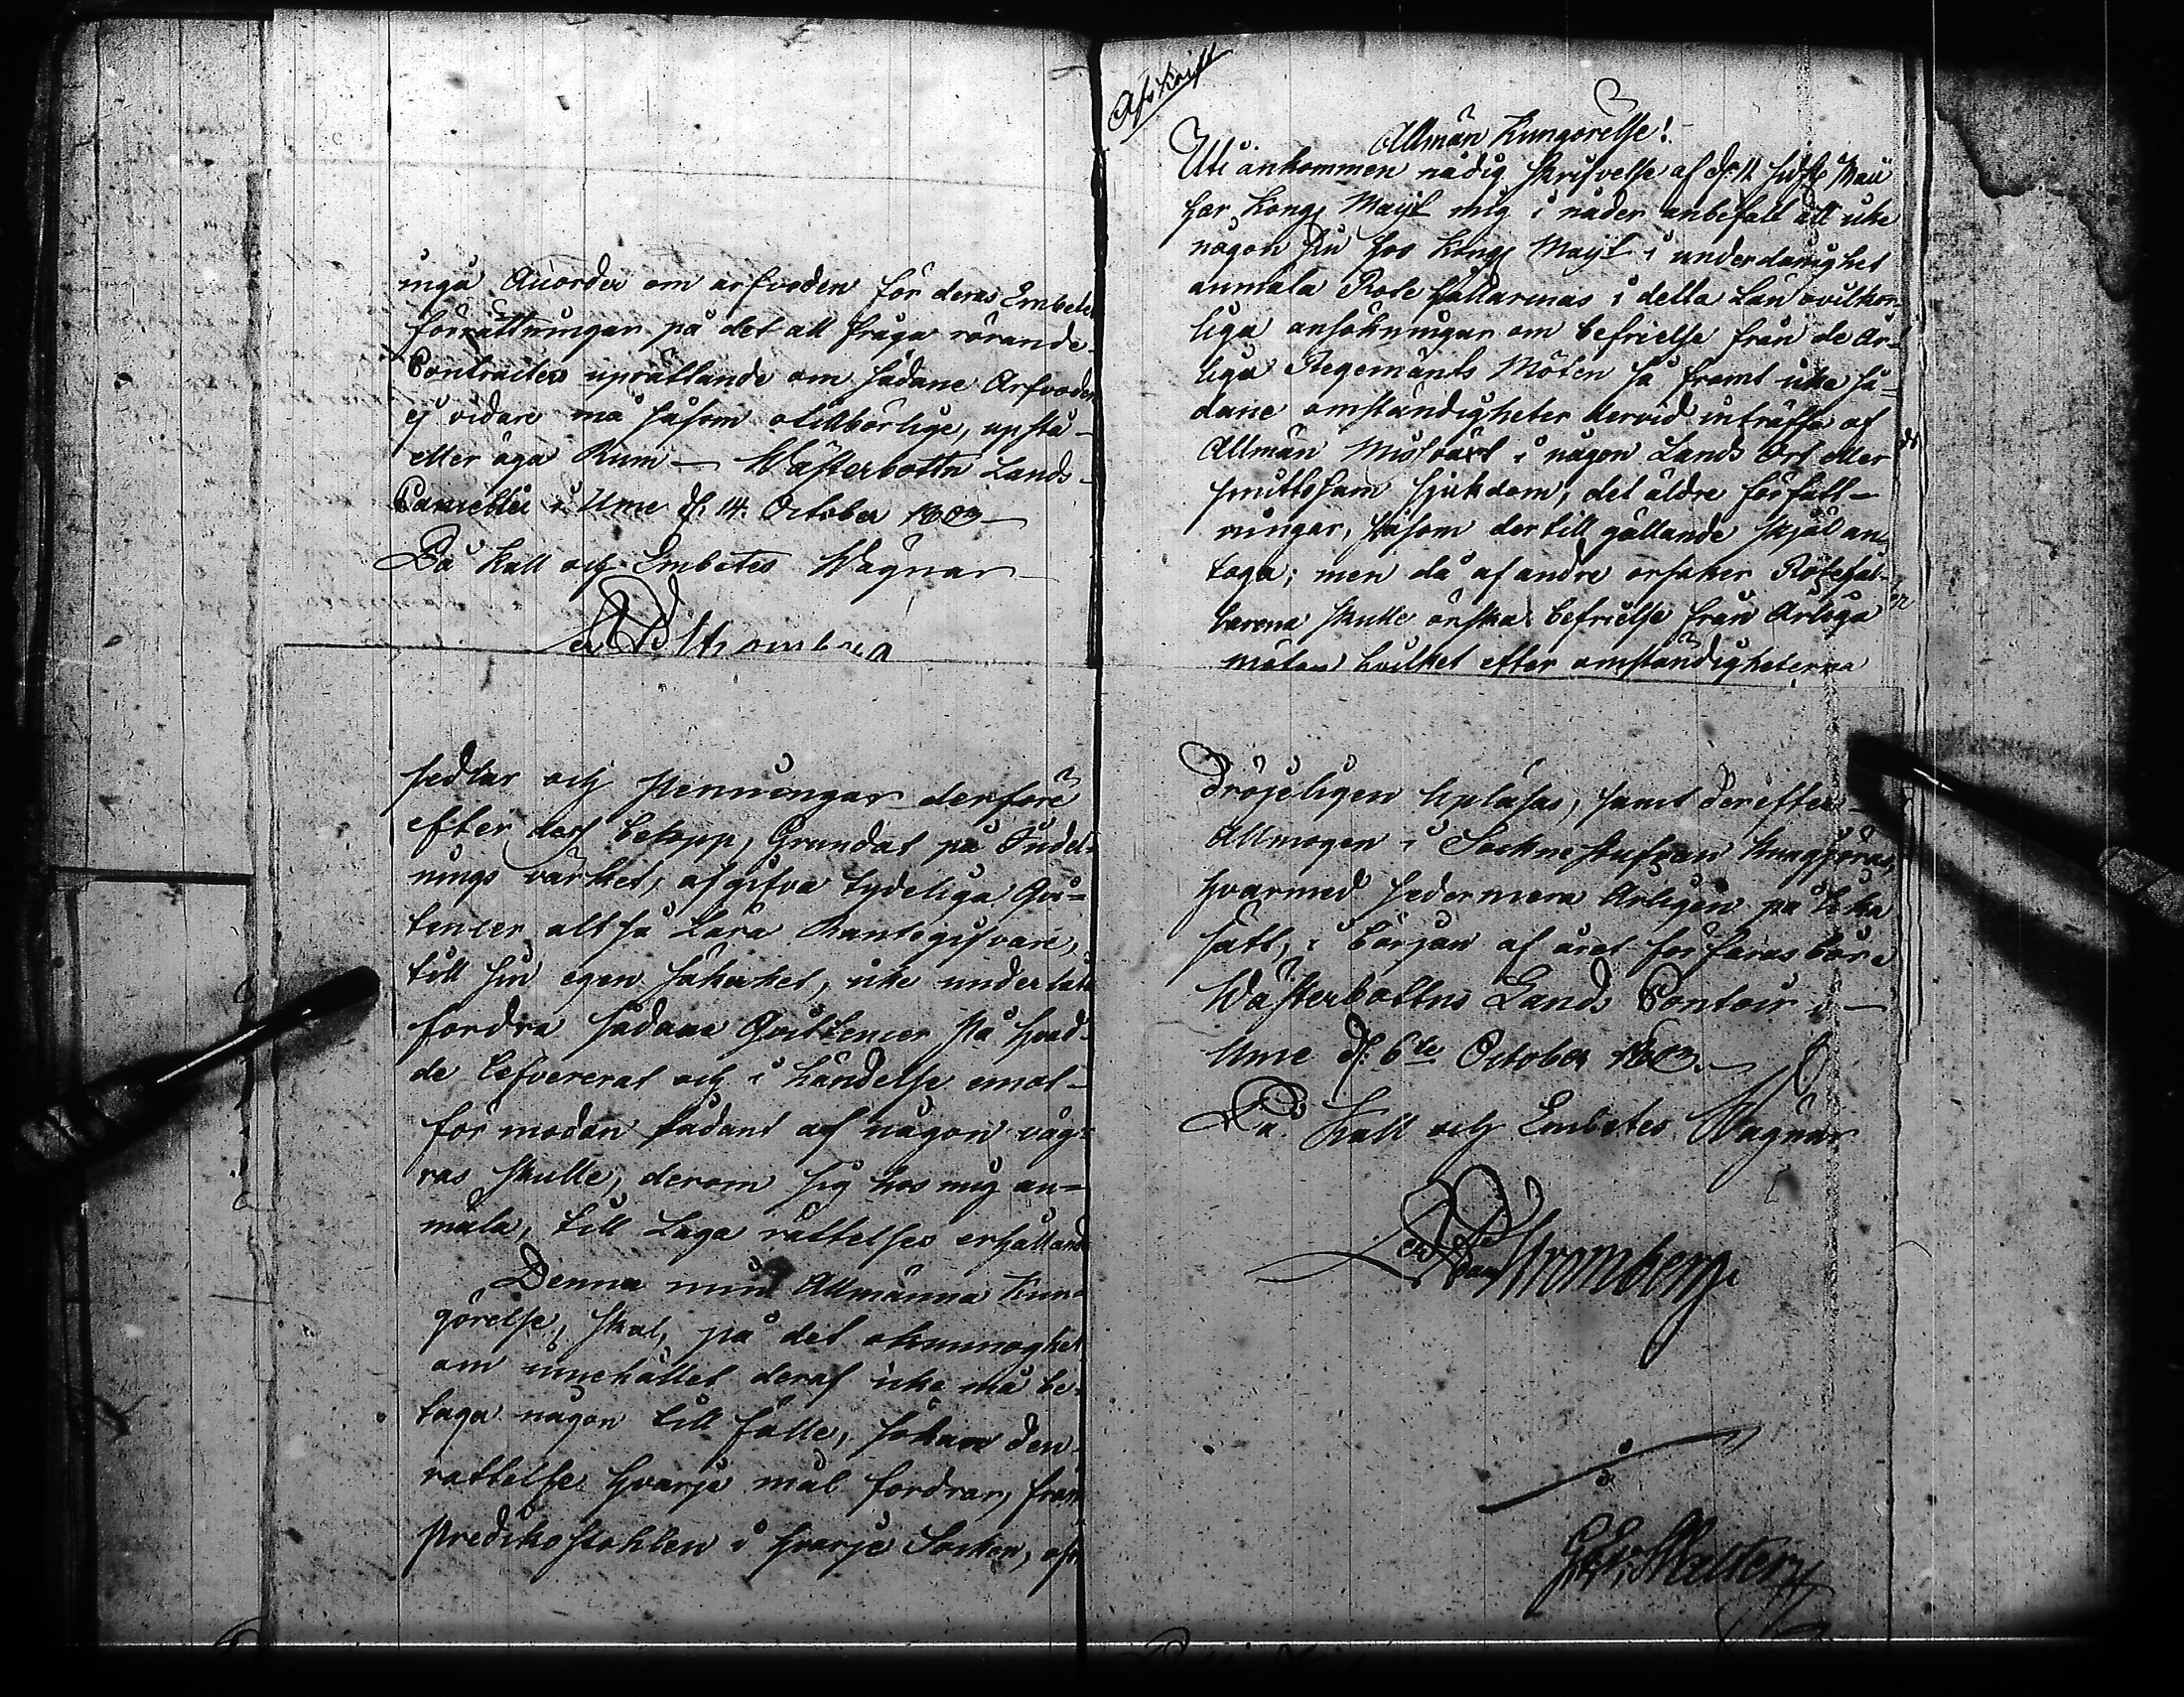 inga Accorder om arfvoden för deras Embets
förrättningar på det all fråga rörande
Contracters uprättande om sådane Arfvoden
ej vidare må såsom otillbörlige, upstå
eller äga Rum — Wästerbottn Lands
Cancellie i Ume d. 14. October 1803
På Kall och Embetes Wägnar
Stromberg
sedlar och stemningar derföre
efter dess belopp, Grundat på Indel-
nings värket, afgifva tydeliga Qvi-
tencer altså Lära Rantegifvare,
till sin egen säkerhet, icke underlåta
fordra sådane Qvittencer på hvad
de lefvererat och i händelse emot
förmodan sådant af någon väg-
ras skulle, derom sig hos mig an-
mäla, till Laga rättelses erhålland
Denna min Allmänna Kun-
görelse, skal, på det okunnoghet
om innehållet deraf icke må be-
taga någon till fälle, söka den
rättelse hvarje mål fordrar, från
Predikostohlen i hvarje Socken, of
Afskrift
Allmän Kungörelse!
Uti ankommen nådig skrifvelse af d. 11 sidstl Maii
har Kongl Mayt mig i nåder anbefalt att icke
någon sin hos Kongl Mayt i underdånighet
anmäla Rotehållarenas i detta Län ovilkor-
liga ansökningar om befrielse från de År-
liga Regements Möten så framt icke så-
dane omständigheter dervid inträffa af
Allmän Misväxt i någon Lands Ort eller
smittosam sjukdom, det äldre författ-
ningar, såsom dertill gällande skjäl an-
taga; men då af andre orsaker Rotehål-
larena skulle önska befrielse från Årliga
möten hvilket efter omständigheterna
dröjeligen upläsas, samt derefter
Allmogen i Sockne stufvan kungjöras,
hvarmed sedermera Årligen på lika
sätt, i början af året förfaras bör
Wästerbottns Lands Contoir i
Ume d. 6te October 1803.
På Kall och Embetes Wägnar
Stromberg